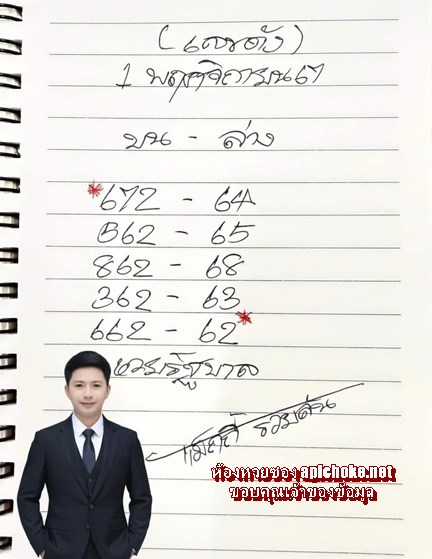 (เลขดัง)
1 พฤศจิกายน 67
บน - ล่าง
*672 - 64
562 - 65
862 - 68
362 - 63
662 - 62*
หวยรัฐบาล
ห้องหวยซอง aplchoke.net
ขอบคุณเจ้าของข้อมูล